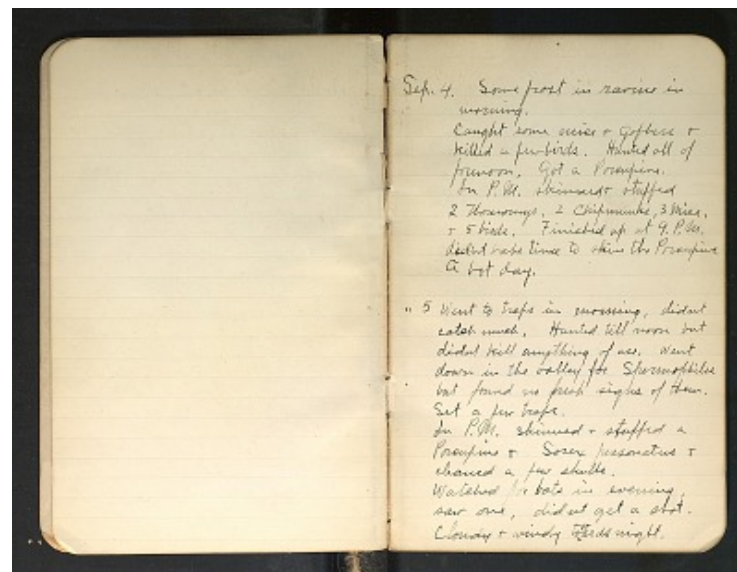 Sep. 4. Some frost in ravine in
morning.
Caught some mice + Gophers +
killed a few birds. Hunted all of
forenoon. Got a Porcupine.
In P.M. skinned + stuffed
2 Thomomys, 2 Chipmunks, 3 Mice,
+ 5 birds. Finished up at 9 P.M.
didnt have time to skin the Porcupine
A hot day.
" 5 Went to traps in morning, didnt
catch much. Hunted till noon but
didnt kill anything of use. Went
down in the valley for Spermophiles
but found no fresh signs of them.
Set a few traps.
In P.M. skinned + stuffed a
Porcupine + Sorex personatus +
cleaned a few skulls.
Watched for bats in evening,
saw one, didnt get a shot.
Cloudy + windy towards night.